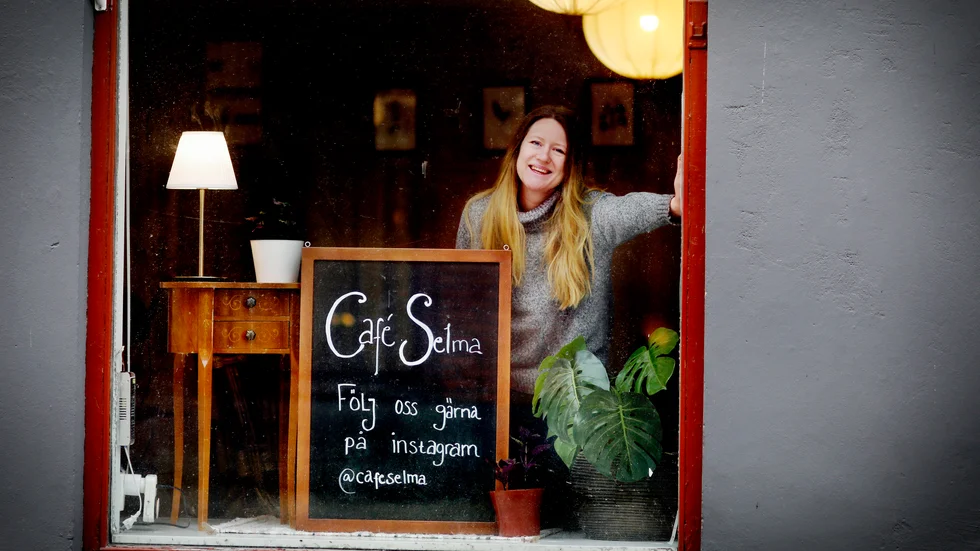 Café Selma
Följ oss gärna
på instagram
@cafeselma